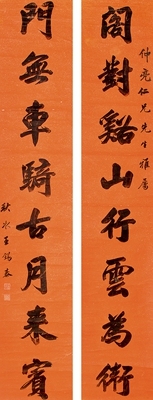 仲亮仁兄先生雅屬
閣對谿山行雲為衛
門無車騎古月來賓
王錫